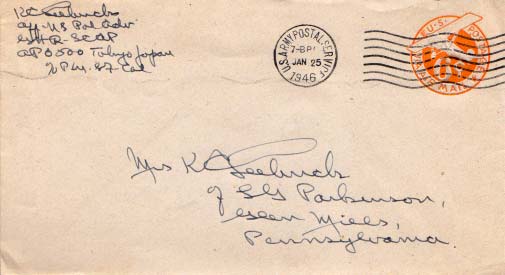 KC Seebuck
Off US Pol Adv
GHQ-SCAP
APO 500 Tokyo Japan
% PM. SF Cal
U.S. ARMY POSTAL SERVICE
JAN 25
1946
U.S. POSTAGE
AIR MAIL
Mrs KC Seebuck
% Parkinson,
Glen Mills,
Pennsylvania.